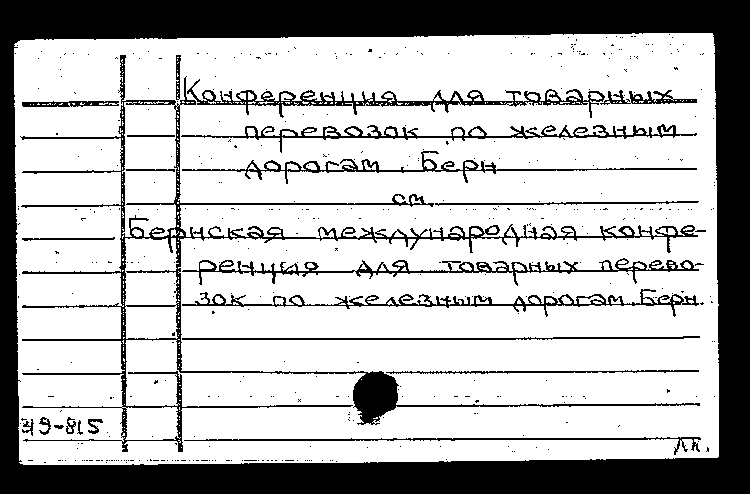 Конференция для товарных
перевозок по железным
дорогам. Берн
см.
Бернская международная конфе-
ренция для товарных перево-
зок по железным дорогам. Берн.
49-815